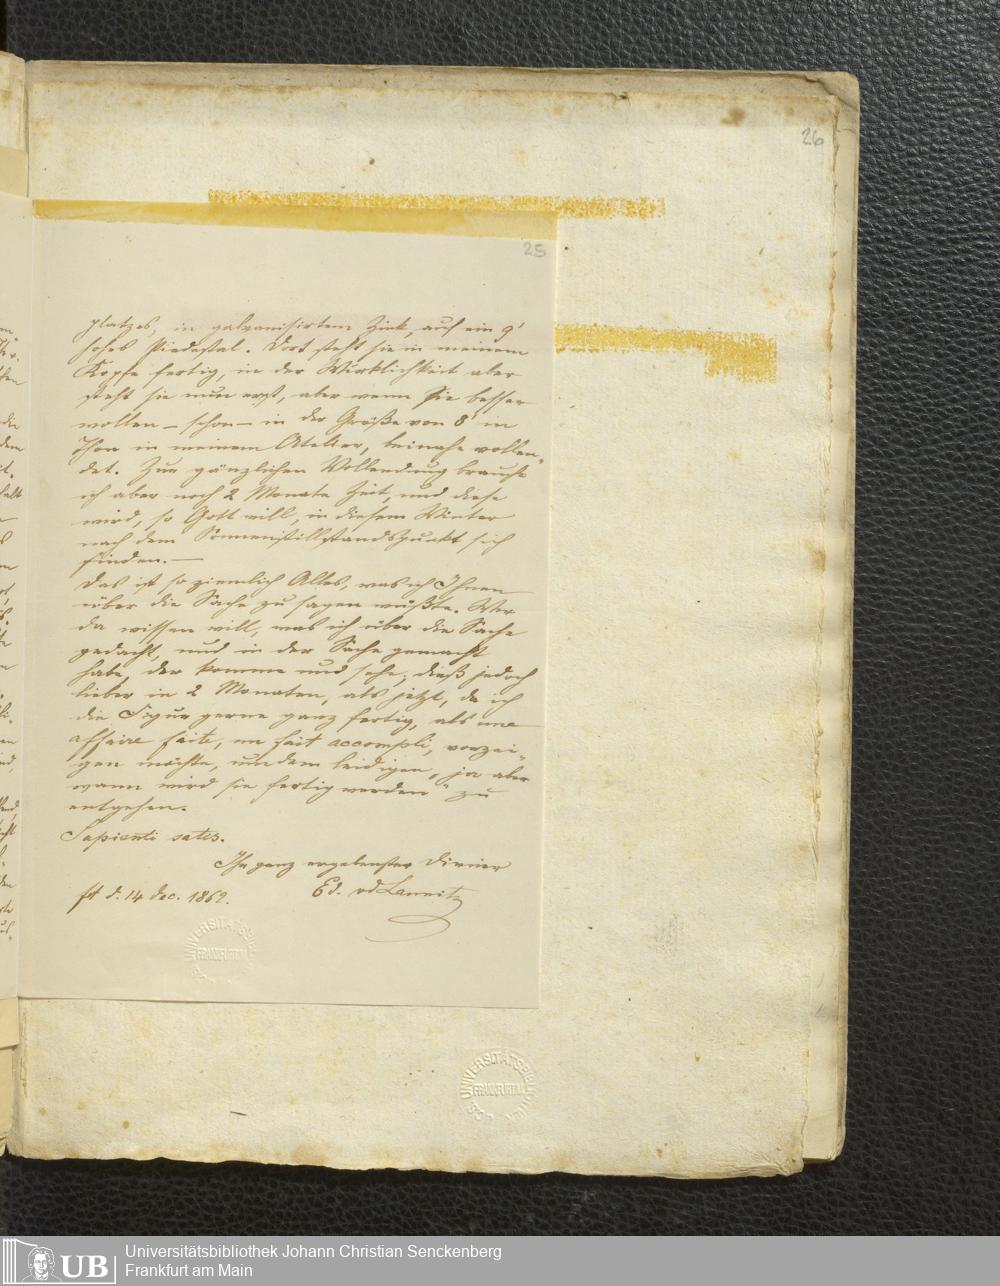 26
25
platzes, in galvanisirtem Zink, auf ein 9'
hohes Piedestal. Dort steht sie in meinem
Kopfe fertig, in der Wirklichkeit aber
steht sie nun erst, aber wenn Sie besser
wollen – schon – in der Größe von 8' in
Thon in meinem Atelier, beinahe vollen-
det. Zur gänzlichen Vollendung brauche
ich aber noch 2 Monate Zeit, und diese
wird, so Gott will, in diesem Winter
nach dem Sonnenstillstandspunkt sich
finden. –
Das ist so ziemlich Alles, was ich Ihnen
über die Sache zu sagen wüßte. Wer
da wissen will, was ich über die Sache
gedacht, und in der Sache gemacht
habe, der komme und sehe; dieß jedoch
lieber in 2 Monaten, als jetzt, da ich
die Figur gerne ganz fertig, als une
affaire faite, un fait accompli, vorzei-
gen möchte, um dem leidigen „ja aber
wann wird sie fertig werden" zu
entgehen.
Sapienti satis.
Ihr ganz ergebenster Diener
Ed. vd Launitz
fft d. 14 Dec. 1862.
UNIVERSITÄTSBIBL
FRANKFURT/M.
UNIVERSITÄTSBIBLIOTHEK
FRANKFURT/M.
UB
Universitätsbibliothek Johann Christian Senckenberg
Frankfurt am Main